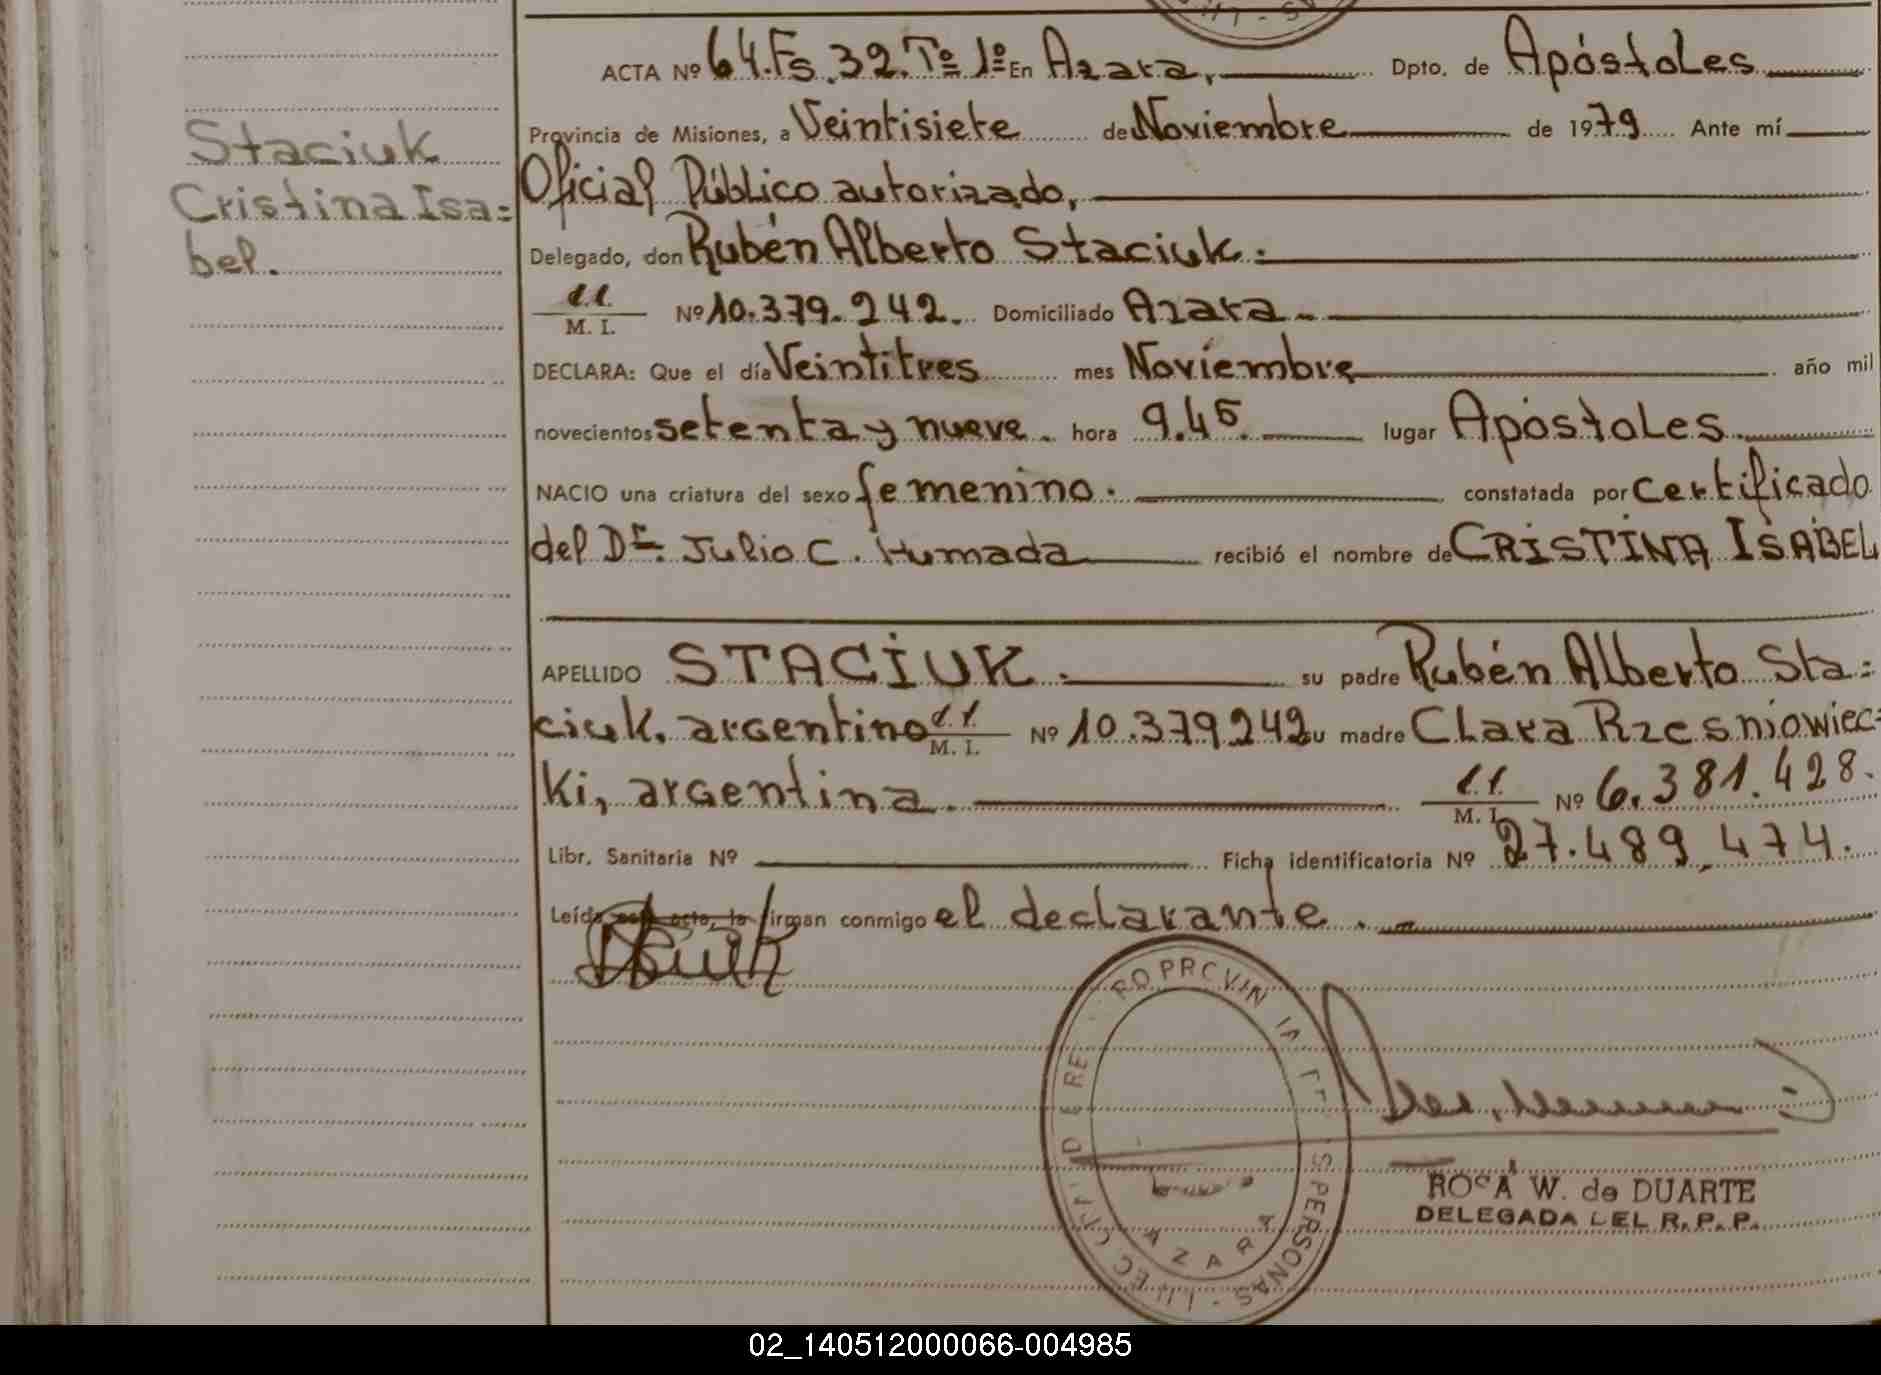 ACTA Nº 64. Fs. 32. Tº 1º En Azara, Dpto. de Apóstoles
Staciuk
Cristina Isa=
bel.
Provincia de Misiones, a Veintisiete de Noviembre de 1979 Ante mí
Oficial Público autorizado,
Delegado, don Rubén Alberto Staciuk.
M. I. Nº 10.379.242. Domiciliado Azara.
DECLARA: Que el día Veintitres mes Noviembre año mil
novecientos setenta y nueve. hora 9.45 lugar Apóstoles.
NACIO una criatura del sexo femenino. constatada por Certificado
del Dr. Julio C. Humada recibió el nombre de CRISTINA ISABEL
APELLIDO STACIUK. su padre Rubén Alberto Sta=
ciuk, argentino M. I. Nº 10.379242 su madre Clara Rzesniowiec=
ki, argentina. M. I. Nº 6.381.428.
Libr. Sanitaria Nº Ficha identificatoria Nº 27.489.474.
Leída esta acta, la firman conmigo el declarante.
PERSONAS
AZARA
ROSA W. de DUARTE
DELEGADA DEL R. P. P.
02_140512000066-004985